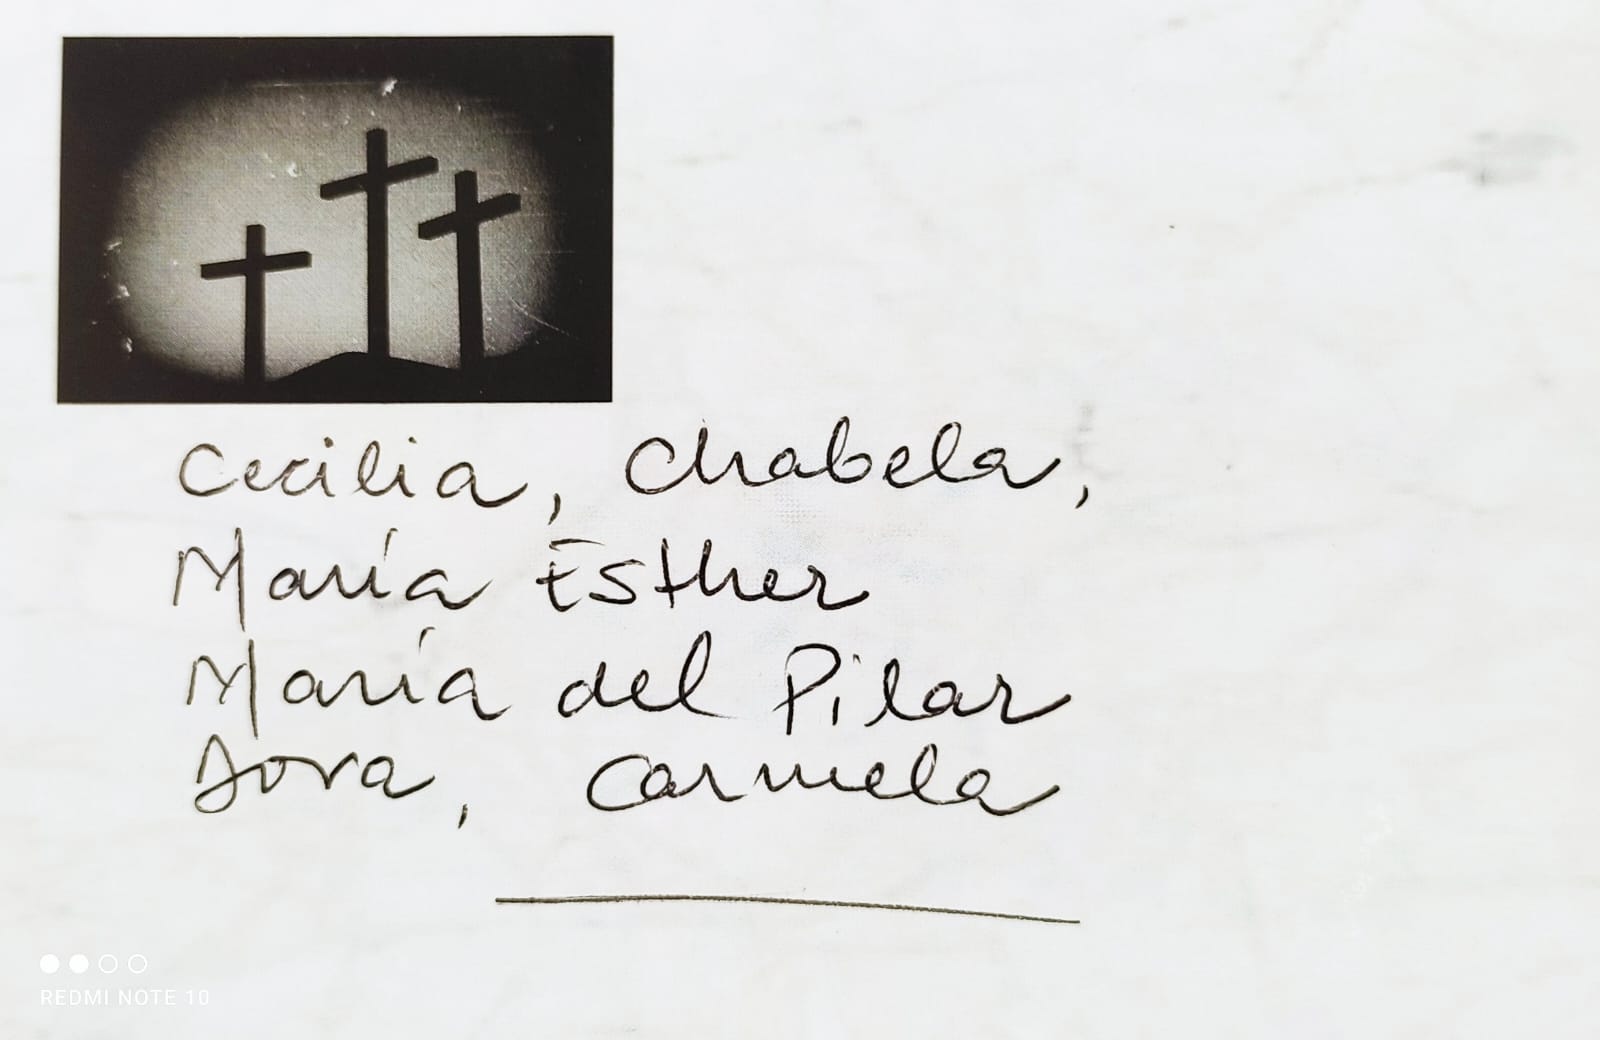 Cecilia, Chabela,
María Esther
María del Pilar
Dora, Carmela
REDMI NOTE 10